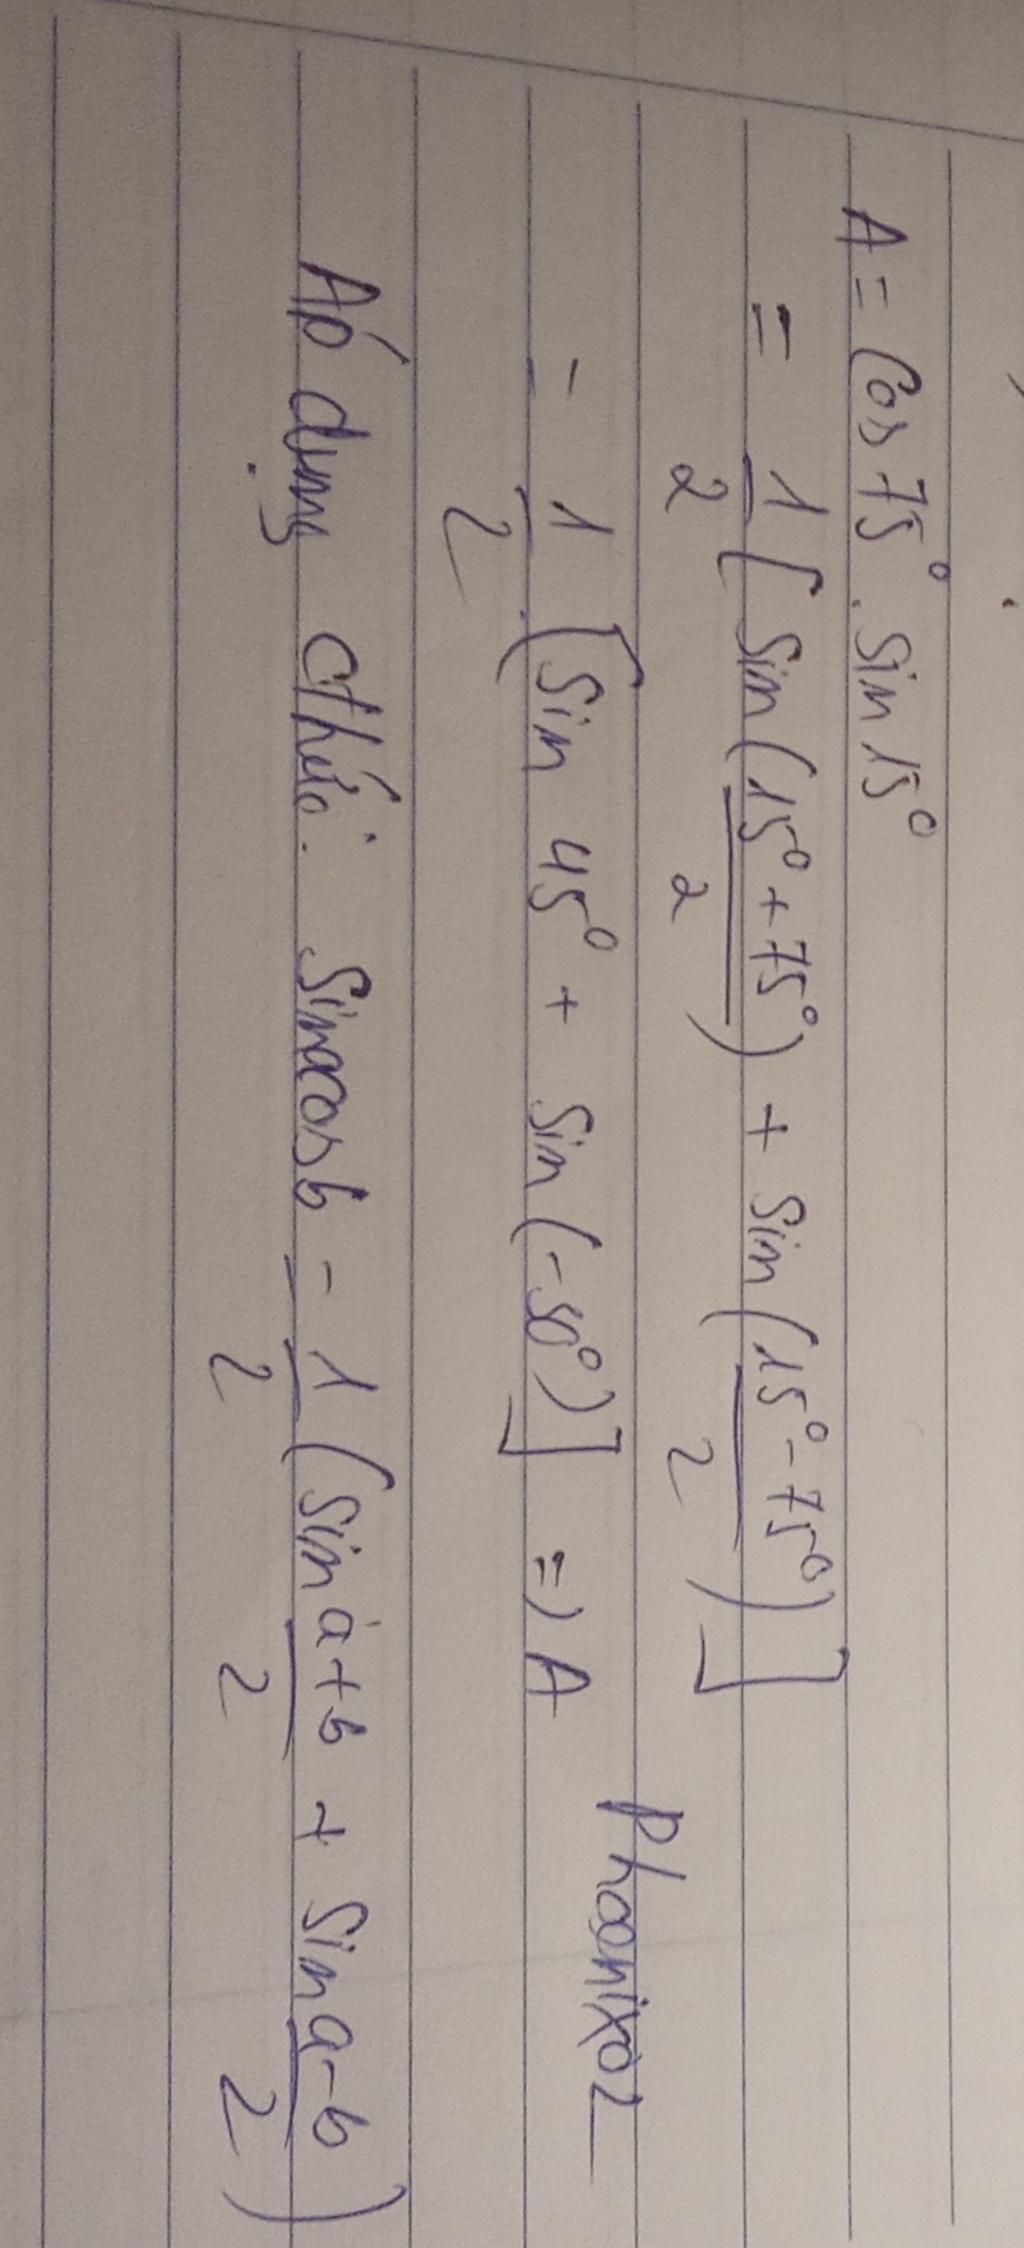 A = Cos 75° . Sin 15°
= 1/2 [ Sin ( (15° + 75°)/2 ) + Sin ( (15° - 75°)/2 ) ]
= 1/2 . [ Sin 45° + Sin (-30°) ] => A
Phoenix02
Áp dụng cthức: Sinacosb = 1/2 ( Sin (a+b)/2 + Sin (a-b)/2 )